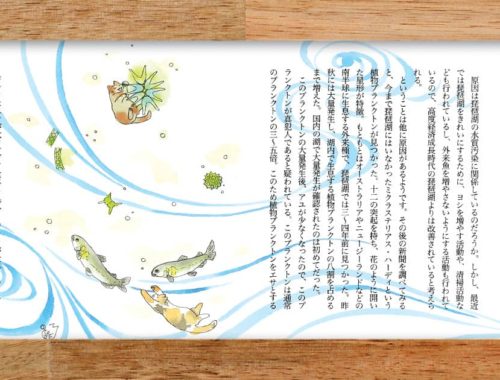 原因は琵琶湖の水質汚染に関係しているのだろうか。しかし、最近
では琵琶湖をきれいにするために、ヨシを増やす活動や、清掃活動な
ども行われているし、外来魚を増やさないようにする活動も行われて
いるので、高度経済成長時代の琵琶湖よりは改善されていると考えら
れる。
ということは他に原因があるようです。その後の新聞を調べてみる
と、今まで琵琶湖にはいなかったミクラステリアス・ハーディという
植物プランクトンが見つかった。十二の突起を持ち、花のように開い
た星形が特徴。もともとはオーストラリアやニュージーランドなどの
南半球に生息する外来種で、琵琶湖では三〜四年前に見つかった。昨
秋には大量発生し、湖内で生息する植物プランクトンの八割を占める
まで増えた。国内の湖で大量発生が確認されたのは初めてだった。
このプランクトンの大量発生後、アユが少なくなったので、このプ
ランクトンが真犯人であると疑われている。このプランクトンは通常
のプランクトンの三〜五倍。このため植物プランクトンをエサとする